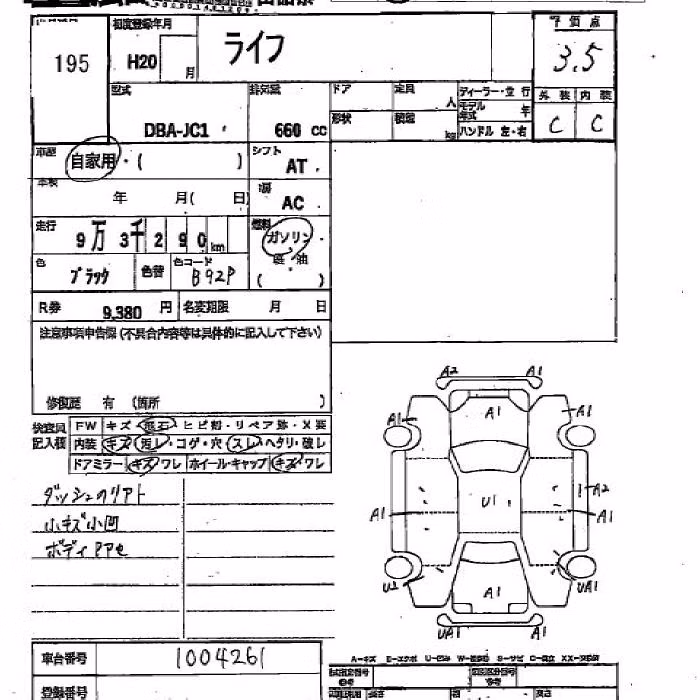 初度登録年月
評価点
195
H20
月
ライフ
3.5
型式
排気量
ドア
定員
人
ディーラー・並行
モデル年式
年
外装
内装
DBA-JC1
660 cc
形状
積載
kg
ハンドル 左・右
C
C
車歴
自家用・( )
シフト
AT
車検
年
月(
日)
AC
走行
9万3千290km
燃料
ガソリン
軽油
( )
色
ブラック
色替
色コード
B92P
R券
9,380 円
名変期限
月
日
注意事項申告欄(不具合内容等は具体的に記入して下さい)
修復歴 有(箇所 )
検査員記入欄
FW キズ・飛石・ヒビ割・リペア跡・X要
内装 キズ・汚レ・コゲ・穴・スレ・ヘタリ・破レ
ドアミラー キズ・ワレ ホイール・キャップ キズ・ワレ
小キズ小凹
A2
A1
A1
A1
A1
U1
A2
A1
A1
U2
A1
UA1
UA1
A1
A-キズ E-エクボ U-凹み
車台番号
1004261
登録番号